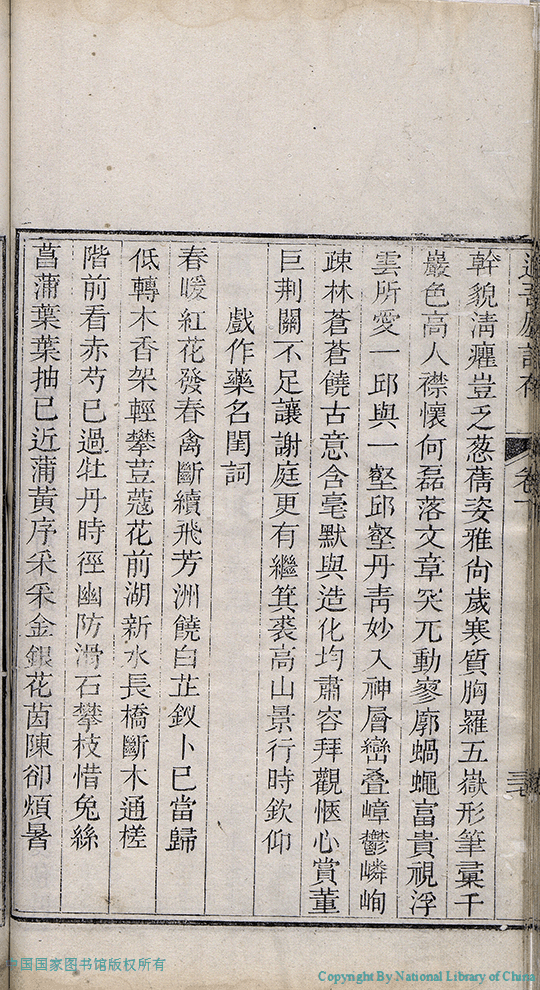 吾廬詩存 卷
幹貌淸癯豈乏葱蒨姿雅尙歲寒質胸羅五嶽形筆彙千
巖色高人襟懷何磊落文章突兀動寥廓蝸蠅富貴視浮
雲所愛一邱與一壑邱壑丹靑妙入神層巒叠嶂鬱嶙峋
疎林蒼蒼饒古意含毫默與造化均肅容拜觀愜心賞董
巨荆關不足讓謝庭更有繼箕裘高山景行時欽仰
戲作藥名閨詞
春暖紅花發春禽斷續飛芳洲饒白芷釵卜已當歸
低轉木香架輕攀荳蔻花前湖新水長橋斷木通槎
階前看赤芍已過牡丹時徑幽防滑石攀枝惜兔絲
菖蒲葉葉抽已近蒲黃序采采金銀花茵陳卻煩暑
中国国家图书馆版权所有
Copyright By National Library of China